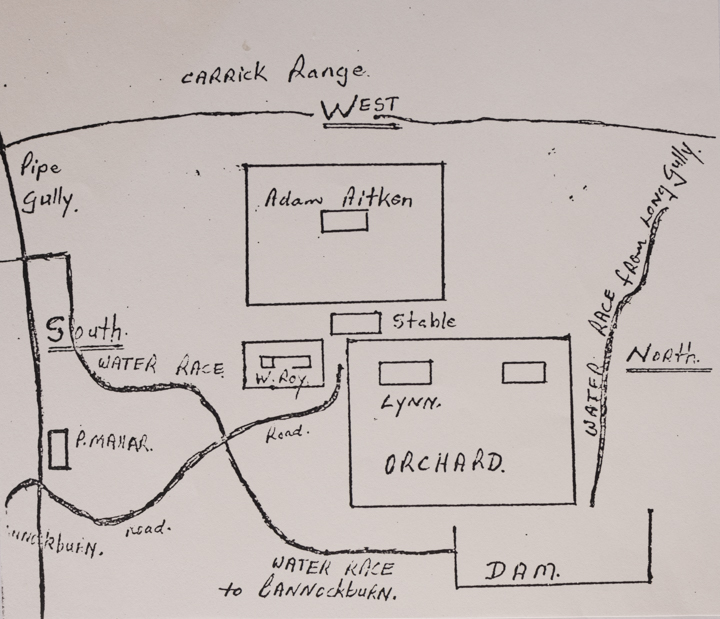 CARRICK Range.
WEST
Pipe
Gully.
Adam Aitken
WATER RACE from Long Gully.
Stable
South.
North.
WATER RACE
W. Roy.
LYNN.
Road.
P. MAHAR.
ORCHARD.
Road.
WATER RACE
to BANNockbuRN.
DAM.